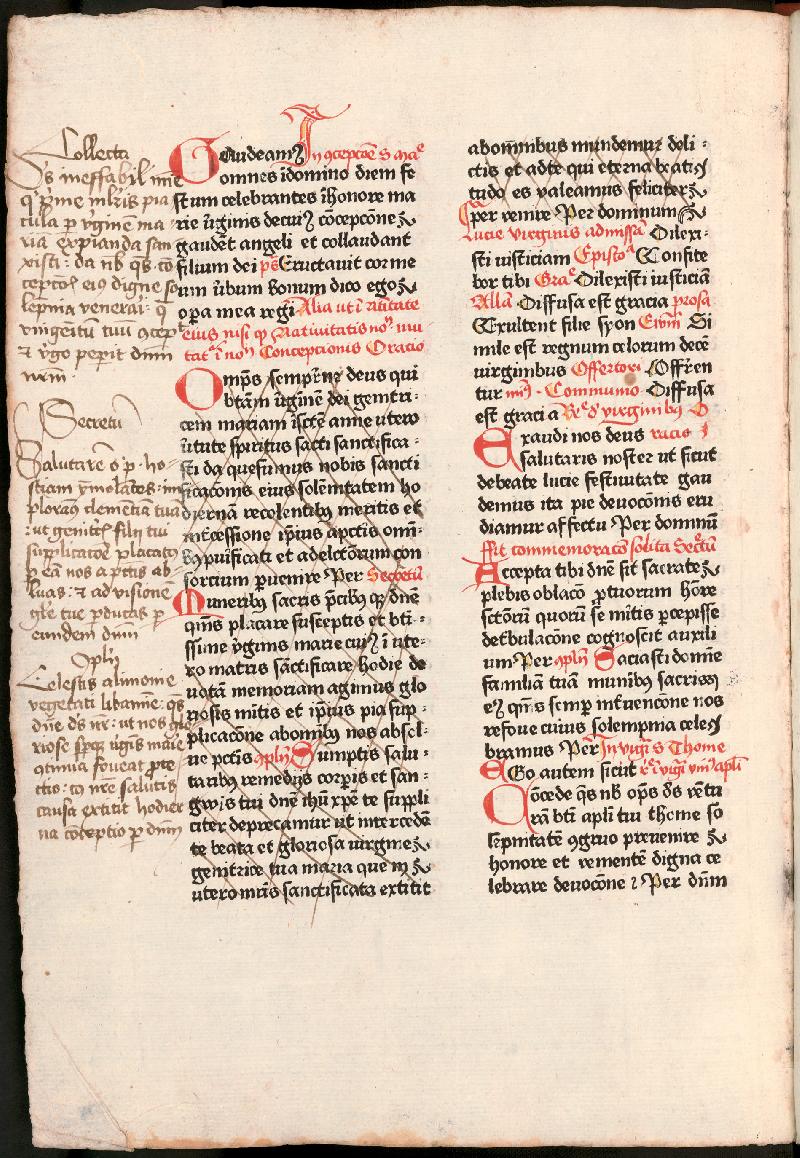 Collecta
Ds ineffabil mie
q prime mlris pia
cula p v̄ginem ma
ria expianda san
xisti : da nb̄ qs cō
cepcōi eiꝰ digne so
lēpnia venerari : q̄
vnigeitū tuū ꝯcep
⁊ v̄go peperit dnm
nrm ·
Secretū
Salutarē o p · ho-
stiam ymolātes : im
ploraꝰ clemētia tua
: ut genitc̄ filij tui
supplicatōe placatꝰ
p eā nos a pctis ab
luas : ⁊ ad visionē
gle tue pducas p
eundem dnm
ꝯplꝫ
Celestis alimonie
vegetati libamine : qs
dne ds nr̄ : ut nos glo
riose spꝫ v̄gis marie
ꝯtinua foveat prote
ctio : cꝰ nr̄e salutis
causa extitit hodier
na cōceptio p dnm
In ꝯcepcōe S marie
Gaudeamꝰ
omnes īdomino diem fe
stum celebrantes īhonore ma
rie v̄ginis decuiꝰ cōcepcōne
gaudēt angeli et collaudant
filium dei ps Eructauit cor me
um v̄bum bonum dico ego
opa mea regi Alia ut ī natiitate
eius nisi qp Natiuitatis noīn mu
tatᵉ ī noīn Concepcionis Oracio
Omps sempit̄ne deus qui
btām v̄ginē dei genitri-
cem mariam īscē anne utero
v̄tute spiritus sācti sanctifica-
sti da quesumus nobis sancti
ficacōnis eius solemtatem ho
diernā recolentibꝰ meritis et
intcessione ipius apctis omī-
bꝰ puificati et adelctōrum con
sorcium puenire Per Secretū
Muneribꝰ sacris pcibꝰ qꝫ dnē
qms placare susceptis et bti-
ssime v̄ginis marie cuiꝰ ī ute-
ro matris sāctificare hodie de
uotā memoriam agimus glo
riosis mītis et ipius pia sup-
plicacōne abomībꝫ nos absol-
ue pctis ꝯplꝫ Sumptis salu-
taribꝫ remedijs corpis et san-
gwis tui dnē ihū xpē te suppli
citer deprecamur ut intercedē
te beata et gloriosa virgine
genitrice tua maria que in
utero mris sanctificata extitit
abominibus mundemur deli-
ctis et adte qui eterna beatiꝰ
tudo es valeamus feliciter
per venire Per dominum
Lucie virginis ad missā Dilexi-
sti iusticiam Epistoᵃ Confite
bor tibi Graᵉ Dilexisti iusticiā
Alla Diffusa est gracia prosa
Exultent filie syon Ewm Si
mile est regnum celorum decē
virginibus Offertori Offren
tur min̄ · Communio Diffusa
est gracia Reᵉ d virginibꝫ O
Exaudi nos deus racio
salutaris noster ut sicut
debeate lucie festiuitate gau
demus ita pie deuocōnis eru
diamur affectu Per domnū
fit commemoracō solita Sectū
Accepta tibi dnē sit sacrate
plebis oblacō ptuorum hōre
sctōrū quorū se mītis pcepisse
det̄bulacōne cognoscit auxili
um Per ꝯplꝫ Saciasti domīe
familiā tuā munibꝰ sacris
eꝰ qms semp intuencōne nos
refoue cuius solempnia celeꝰ
bramus Per In vigi S Thome
Ego autem sicut reᵉ ī vigi vniꝰ apli
Concede qs nb̄ ops ds vētu
rā bti apli tui thome so
lēpnitatē ꝯgruo preuenire
honore et vementē digna ce
lebrare deuocōne ? Per dnm